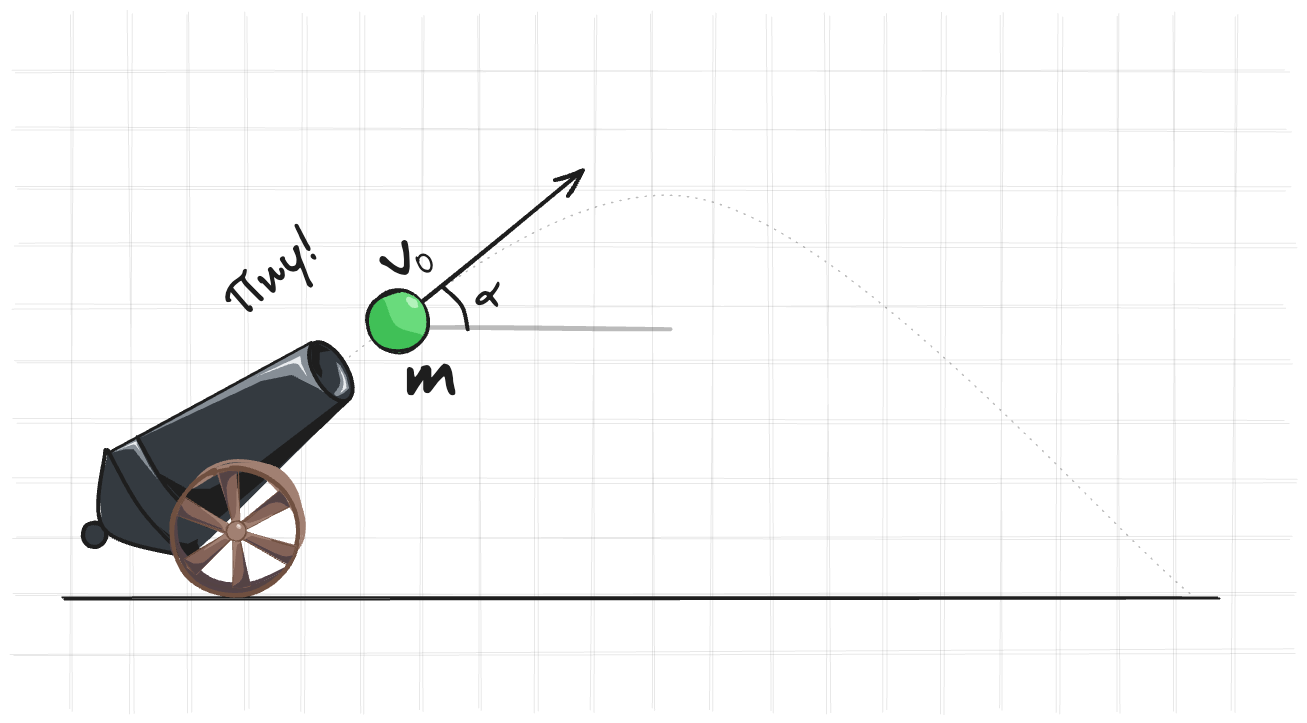 Пиу!
V₀
α
m